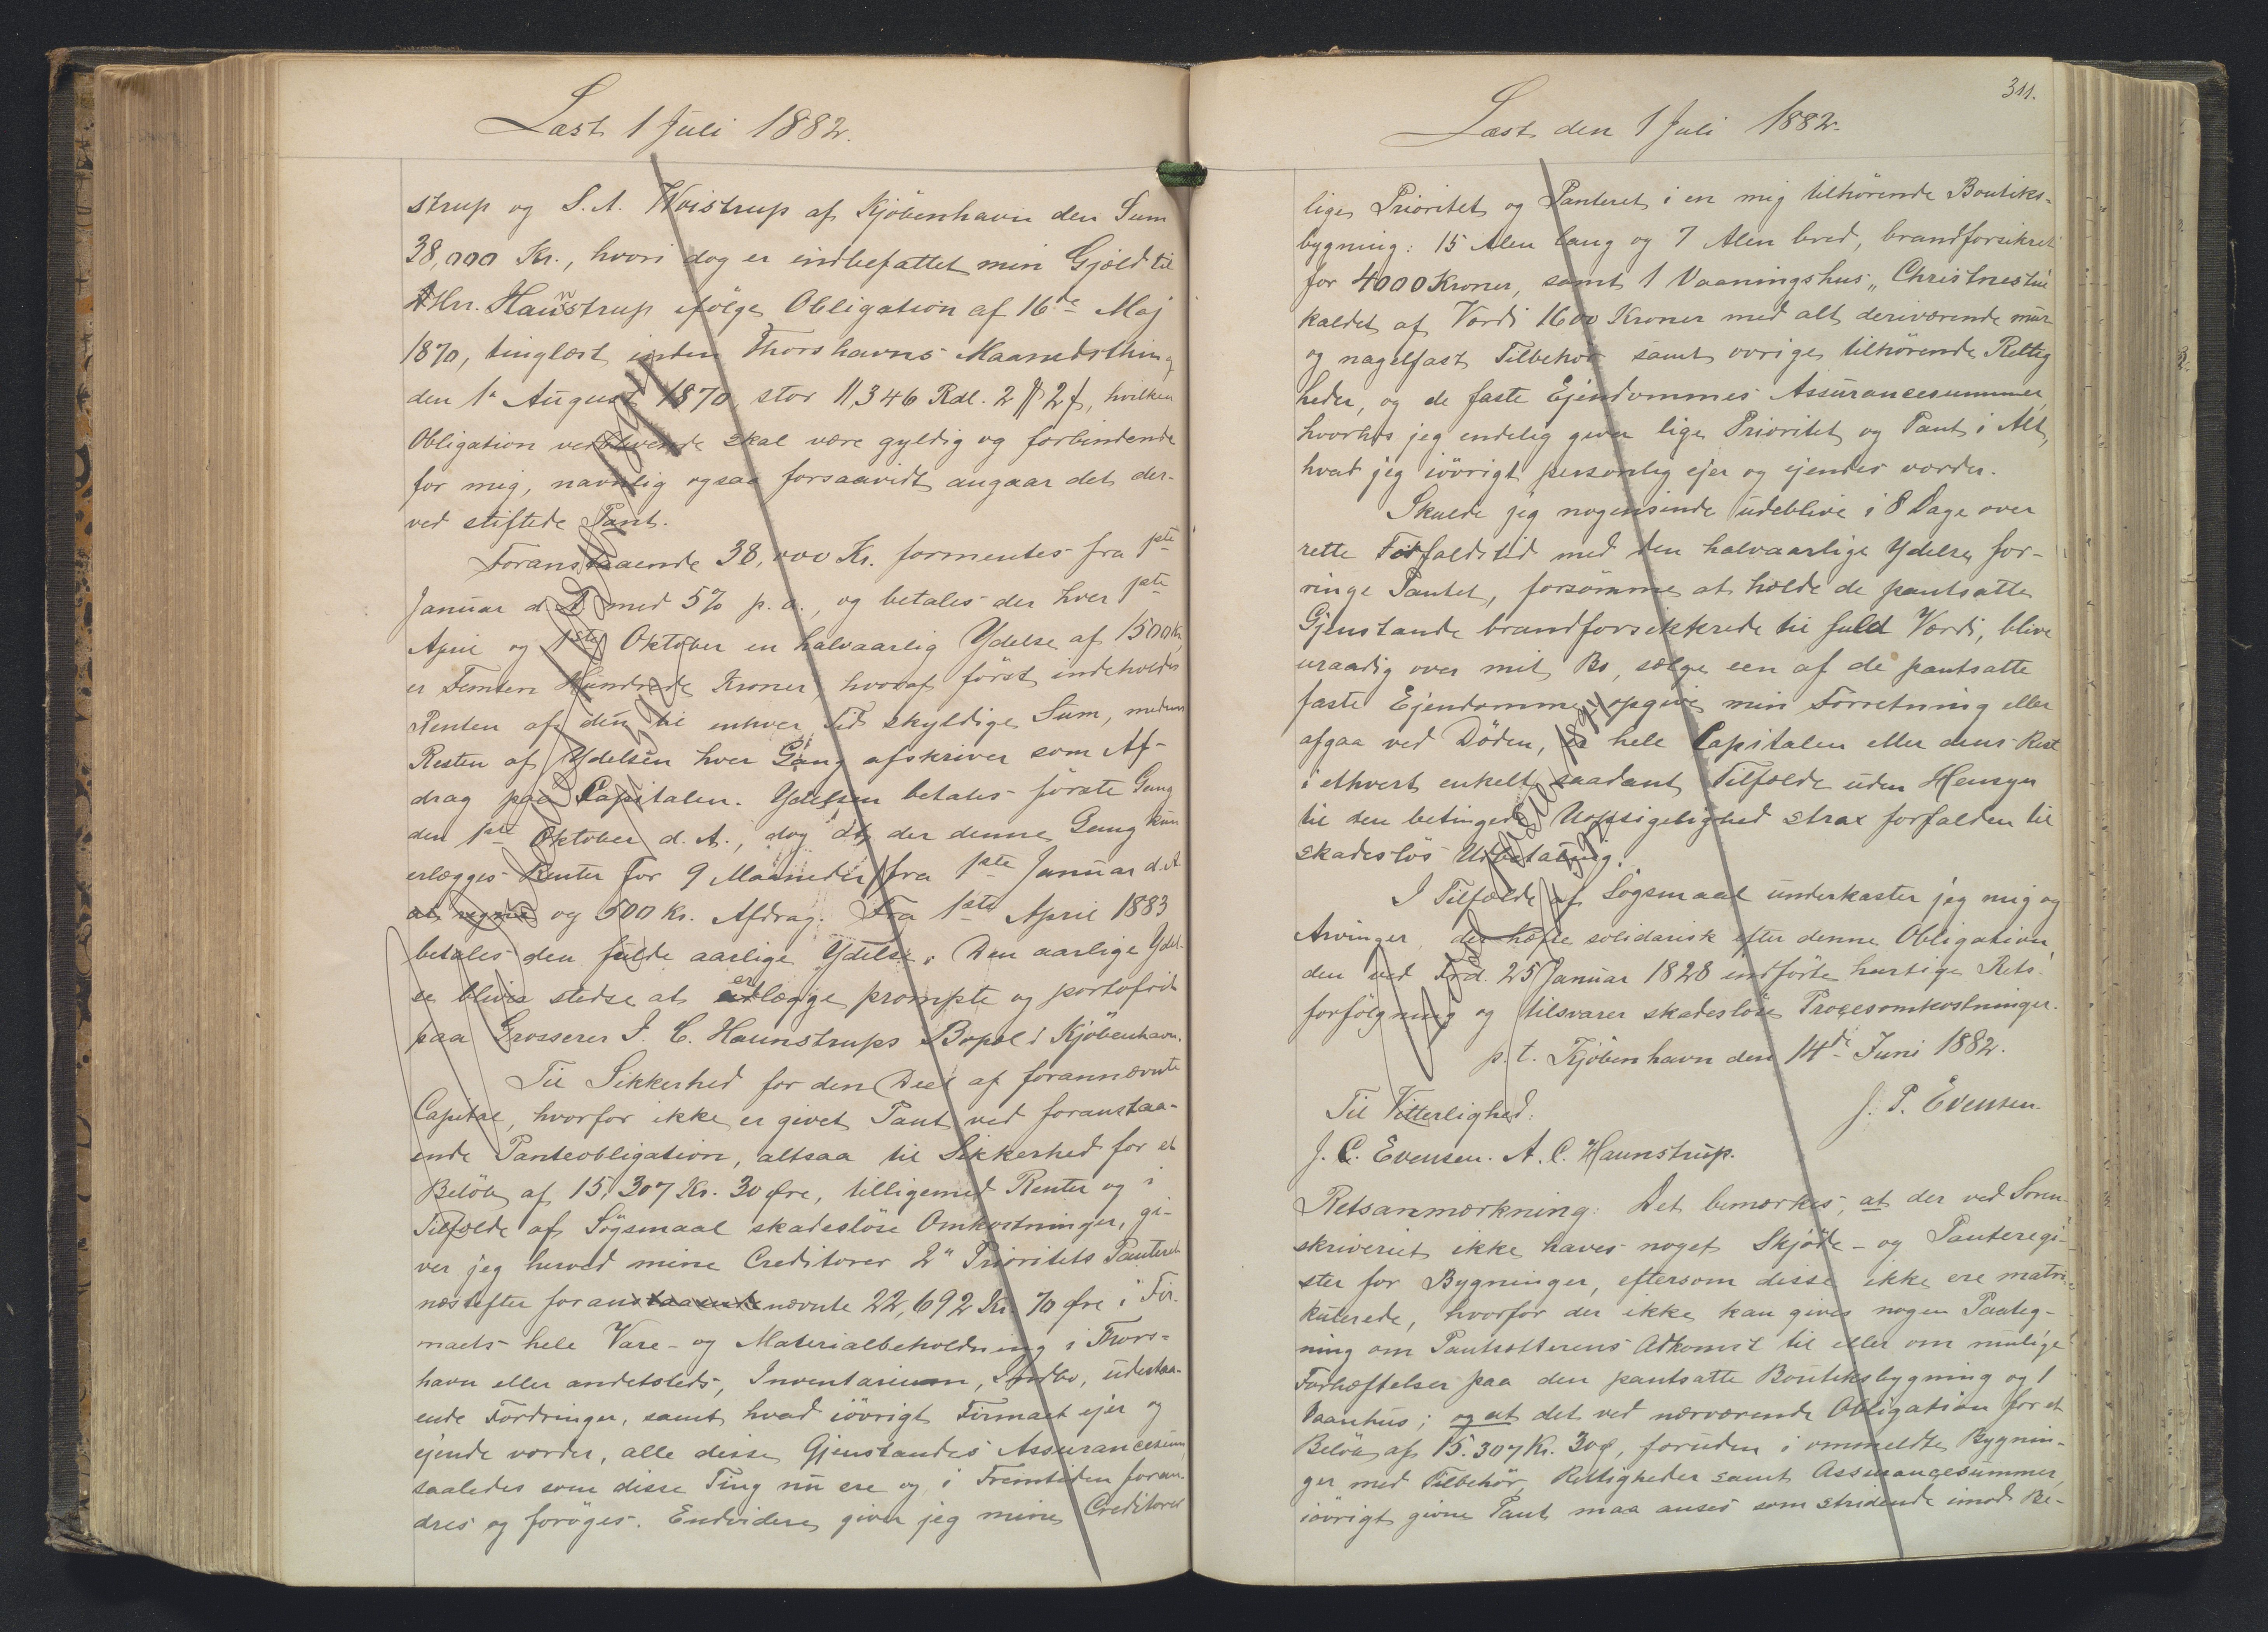 Læst 1 Juli 1882.
strup og S. A. Wvistrup af Kjöbenhavn den Sum
38,000 Kr., hvori dog er indbefattet min Gjæld til
Hrr. Haunstrup ifölge Obligation af 16de Maj
1870, tinglæst inden Thorshavns Maanedsthing
den 1ste August 1870, stor 11,346 Rdl. 2 ℳ 2 ß, hvilken
Obligation vedblivende skal være gyldig og forbindende
for mig, navnlig ogsaa forsaavidt angaar det der-
ved stiftede Pant.
Foranstaaende 38,000 Kr. forrentes fra 1ste
Januar d. A. med 5% p. a., og betales der hver 1ste
April og 1ste Oktober en halvaarlig Ydelse af 1500 Kr,
er Femten Hundrede Kroner, hvoraf först indeholdes
Renten af den til enhver Tid skyldige Sum, medens
Resten af Ydelsen hver Gang afskrives som Af-
drag paa Capitalen. Ydelsen betales förste Gang
den 1ste Oktober d. A., dog at der denne Gang kun
erlægges Renter for 9 Maaneder fra 1ste Januar d. A.
at regne og 500 Kr. Afdrag. Fra 1ste April 1883
betales den fulde aarlige Ydelse. Den aarlige Ydel-
se bliver stedse at erlægge prompte og portofrit
paa Grosserer J. C. Haunstrups Bopæl i Kjöbenhavn.
Til Sikkerhed for den Deel af forannævnte
Capital, hvorfor ikke er givet Pant ved foranstaa-
ende Panteobligation, altsaa til Sikkerhed for et
Belöb af 15,307 Kr. 30 Øre, tilligemed Renter og i
Tilfælde af Sögsmaal skadeslöse Omkostninger, gi-
ver jeg herved mine Creditorer 2den Prioritets Panteret
næstefter foranstaaende nævnte 22,692 Kr. 70 Øre i Fir-
maets hele Vare- og Materialbeholdning i Thors-
havn eller andetsteds, Inventarium, Indbo, udestaa-
ende Fordringer, samt hvad iövrigt Firmaet ejer og
ejende vorder, alle disse Gjenstandes Assurancesum,
saaledes som disse Ting nu ere og i Fremtiden foran-
dres og foröges. Endvidere giver jeg mine Creditorer
311.
Læst den 1 Juli 1882.
lige Prioritet og Panteret i en mig tilhörende Boutiks-
bygning: 15 Alen lang og 7 Alen bred, brandforsikret
for 4000 Kroner, samt 1 Vaaningshus "Christnestue
kaldet af Værdi 1600 Kroner med alt deriværende mur
og nagelfast Tilbehör samt övrige tilhörende Rettig
heder, og de faste Ejendommes Assurancesummer,
hvorhos jeg endelig giver lige Prioritet og Pant i Alt,
hvad jeg iövrigt personlig ejer og ejendes vorder.
Skulde jeg nogensinde udeblive i 8 Dage over
rette Forfaldstid med den halvaarlige Ydelse, for-
ringe Pantet, forsömme at holde de pantsatte
Gjenstande brandforsikkrede til fuld Værdi, blive
uraadig over mit Bo, sælge een af de pantsatte
faste Ejendomme, opgive min Forretning eller
afgaa ved Döden, er hele Capitalen eller dens Rest
i ethvert enkelt saadant Tilfælde uden Hensyn
til den betingede Uopsigelighed strax forfalden til
skadeslös Udbetaling.
I Tilfælde af Sögsmaal underkaster jeg mig og
Arvinger, der hæfte solidarisk efter denne Obligation
den ved Frd. 25 Januar 1828 indförte hurtige Rets-
forfölgning og tilsvarer skadeslöse Procesomkostninger.
p. t. Kjöbenhavn den 14de Juni 1882.
J. P. Evensen.
Til Vitterlighed:
J. C. Evensen. A. C. Haunstrup.
Retsanmærkning: Det bemærkes, at der ved Soren-
skriveriet ikke haves noget Skjöde- og Panteregi-
ster for Bygninger, eftersom disse ikke ere matri-
kulerede, hvorfor der ikke kan gives nogen Paateg-
ning om Pantsætterens Adkomst til eller om mulige
Forhæftelser paa den pantsatte Boutiksbygning og 1
Vaanhus; og at det ved nærværende Obligation for et
Belöb af 15.307 Kr. 30 Ø, foruden i ommeldte Bygnin-
ger med Tilbehör, Rettigheder samt Assurancesummer,
iövrigt givne Pant maa anses som stridende imod Be-